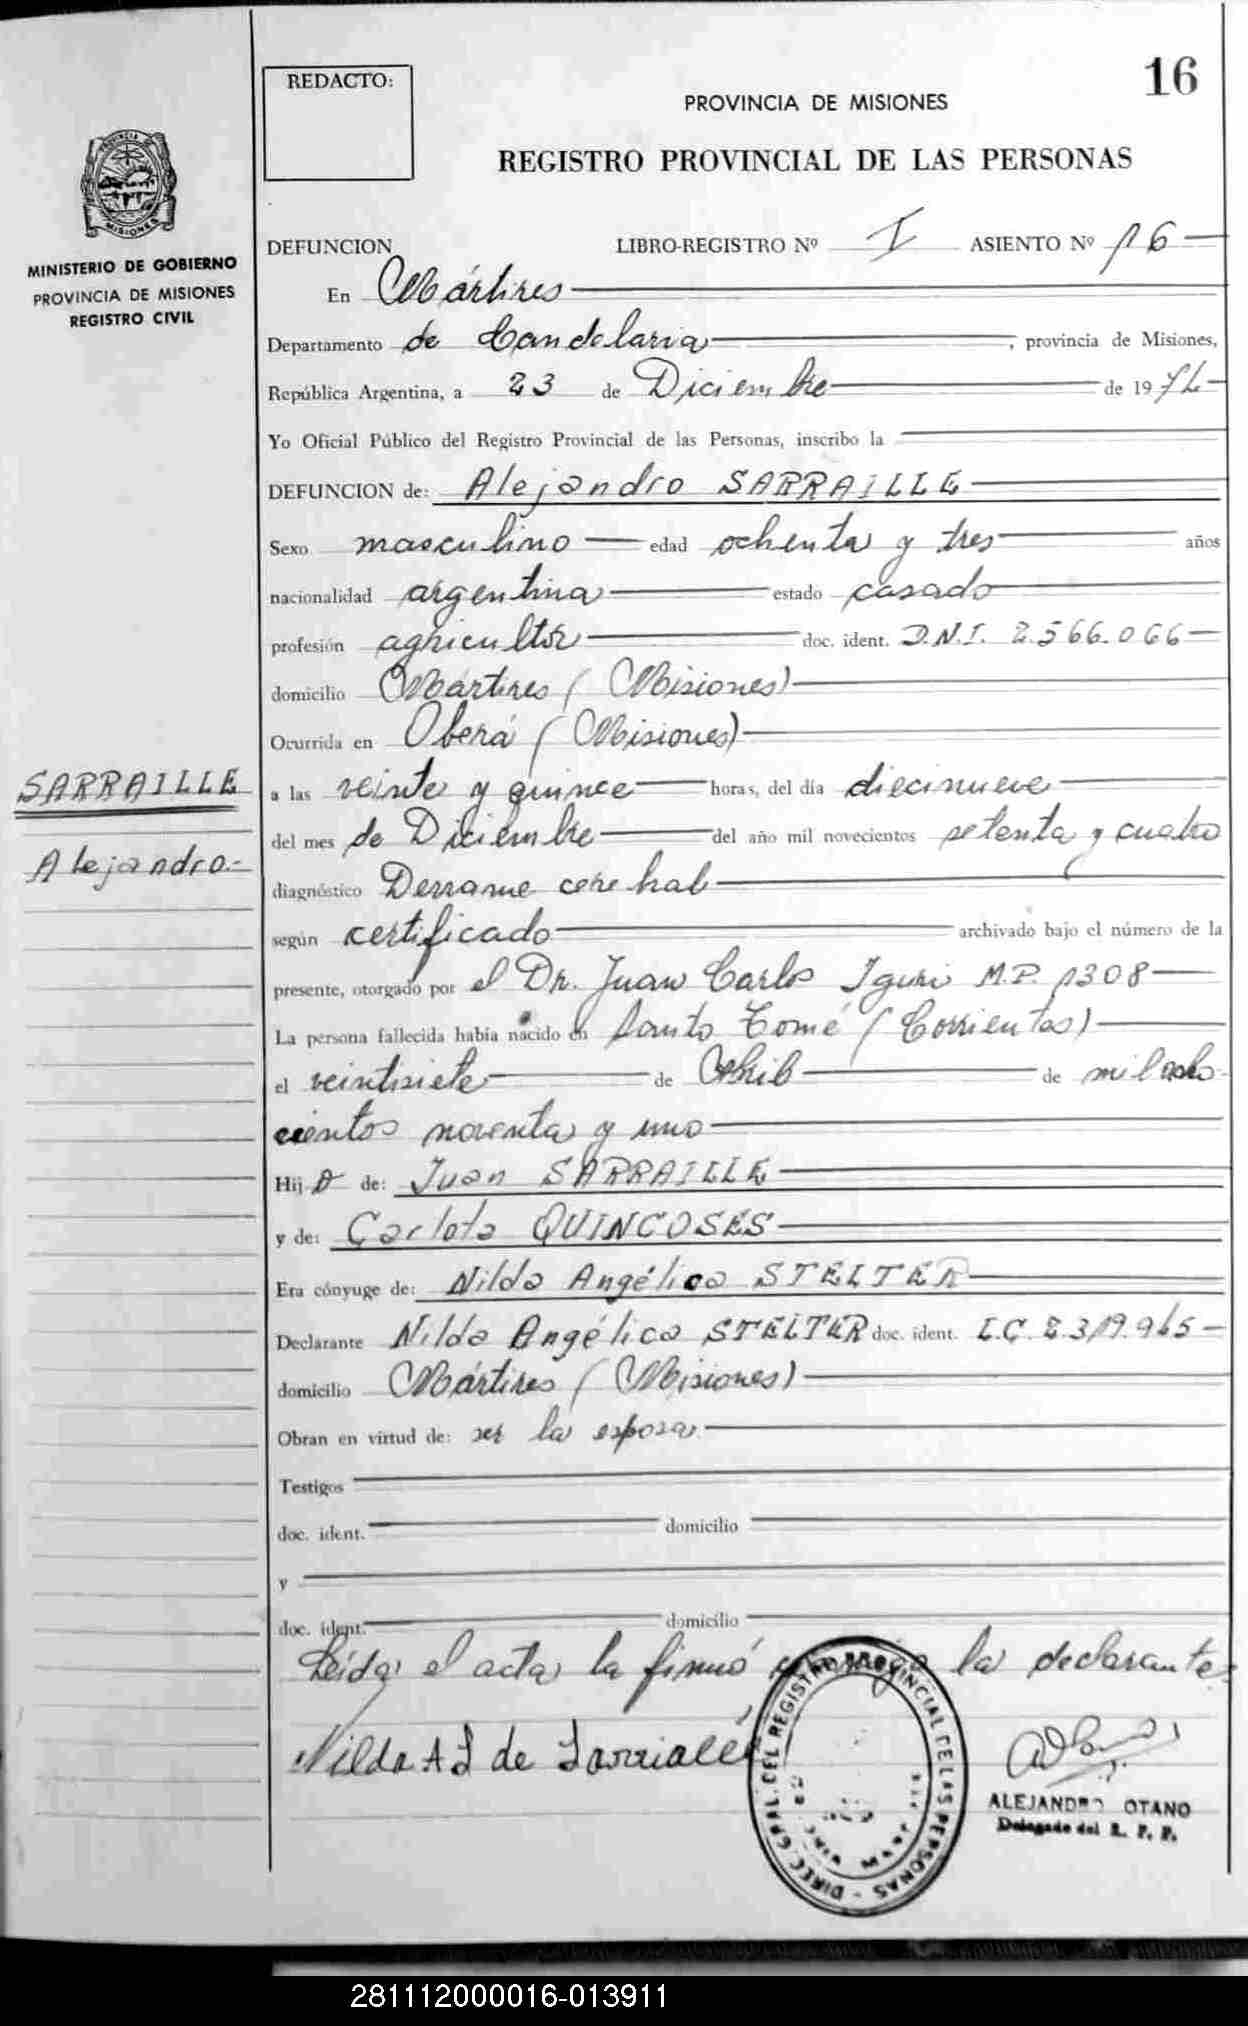 16
REDACTO:
PROVINCIA DE MISIONES
REGISTRO PROVINCIAL DE LAS PERSONAS
MINISTERIO DE GOBIERNO
PROVINCIA DE MISIONES
REGISTRO CIVIL
DEFUNCION LIBRO-REGISTRO Nº I ASIENTO Nº 16
En Mártires
Departamento de Candelaria, provincia de Misiones,
República Argentina, a 23 de Diciembre de 1974
Yo Oficial Público del Registro Provincial de las Personas, inscribo la
DEFUNCION de: Alejandro SARRAILLE
Sexo masculino edad ochenta y tres años
nacionalidad argentina estado casado
profesión agricultor doc. ident. D.N.I. 2.566.066
domicilio Mártires (Misiones)
Ocurrida en Oberá (Misiones)
SARRAILLE
Alejandro.-
a las veinte y quince horas, del día diecinueve
del mes de Diciembre del año mil novecientos setenta y cuatro
diagnóstico Derrame cerebral
según certificado archivado bajo el número de la
presente, otorgado por el Dr. Juan Carlos Iguri M.P. 1308
La persona fallecida había nacido en Santo Tomé (Corrientes)
el veintisiete de Abril de mil ocho
cientos noventa y uno
Hijo de: Juan SARRAILLE
y de: Carlota QUINCOSES
Era cónyuge de: Nilda Angélica STELTER
Declarante Nilda Angélica STELTER doc. ident. L.C. 2.319.965
domicilio Mártires (Misiones)
Obran en virtud de: ser la esposa
Testigos
doc. ident. domicilio
y
doc. ident. domicilio
Leída el acta la firmó conmigo la declarante
Nilda A S de Sarriallé
DIREC. GRAL. DEL REGISTRO PROVINCIAL DE LAS PERSONAS
ALEJANDRO OTANO
Delegado del R. P. P.
281112000016-013911